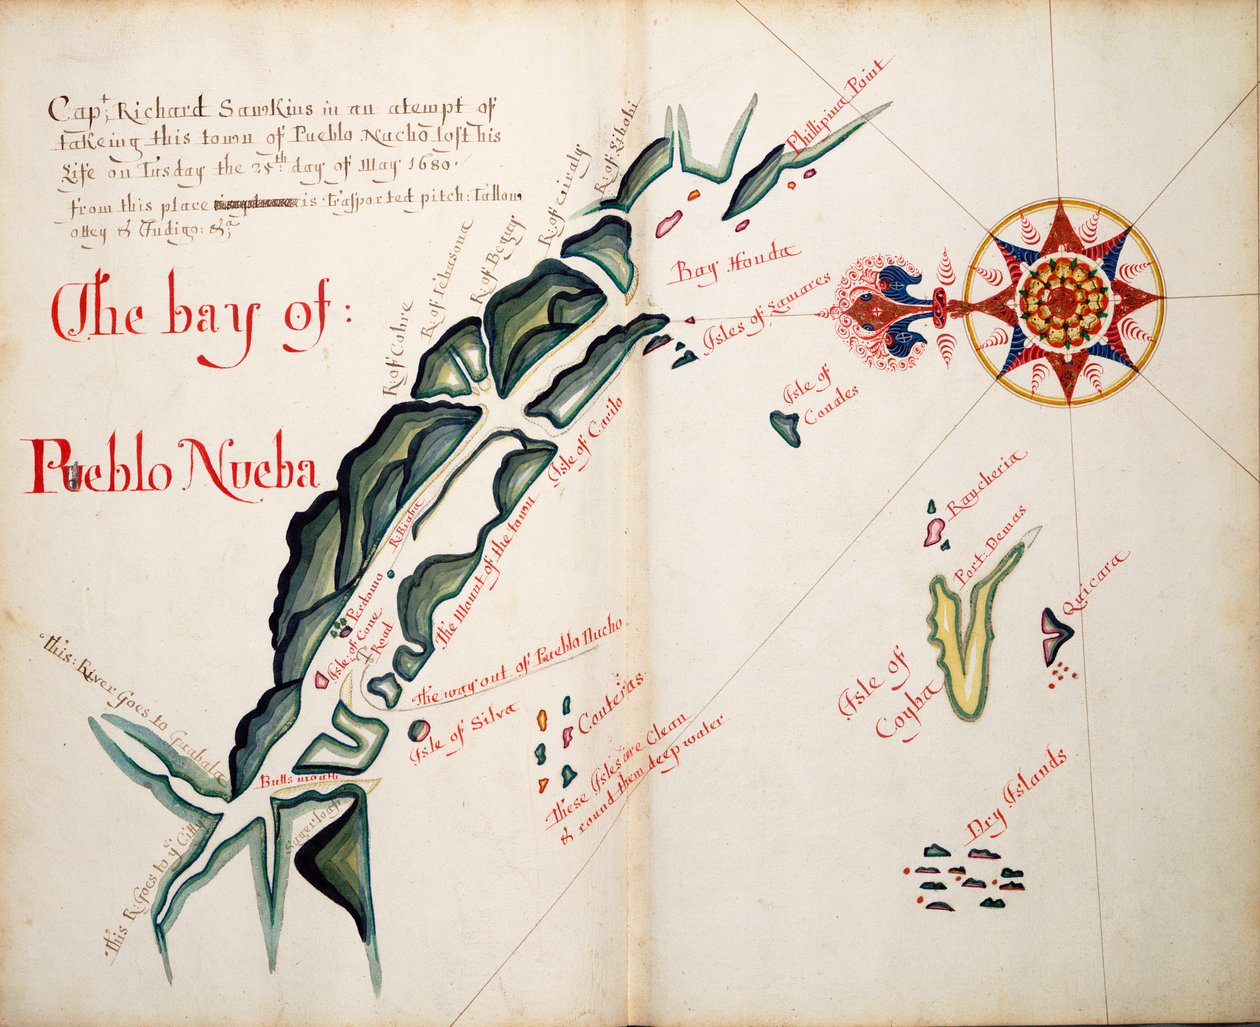 Capt: Richard Sawkins in an atempt of
takeing this town of Pueblo Nucho lost his
Life on Tusday the 25th day of May 1680
from this place is trasported pitch: Tallow,
ottey & Indigo: &a
The bay of:
Pueblo Nueba
R. of Cobre
R. of Tebasona
R. of Beguy
R. of
R. of
Phillipina Point
Bay Honda
Isles of Lamares
Isle of
Conales
Isle of Carilo
R. Biaba
The Mount of the town
Perdomo
Isle of Cone
Road
The way out of Pueblo Nucho
Isle of Silva
Conteras
These Isles are Clean
& round them deep water
Raycheria
Port Demas
Quicara
Isle of
Coyba
Dry Islands
this: River Goes to
Bulls mouth
Sugerloaf
this R. Goes to ye Citty